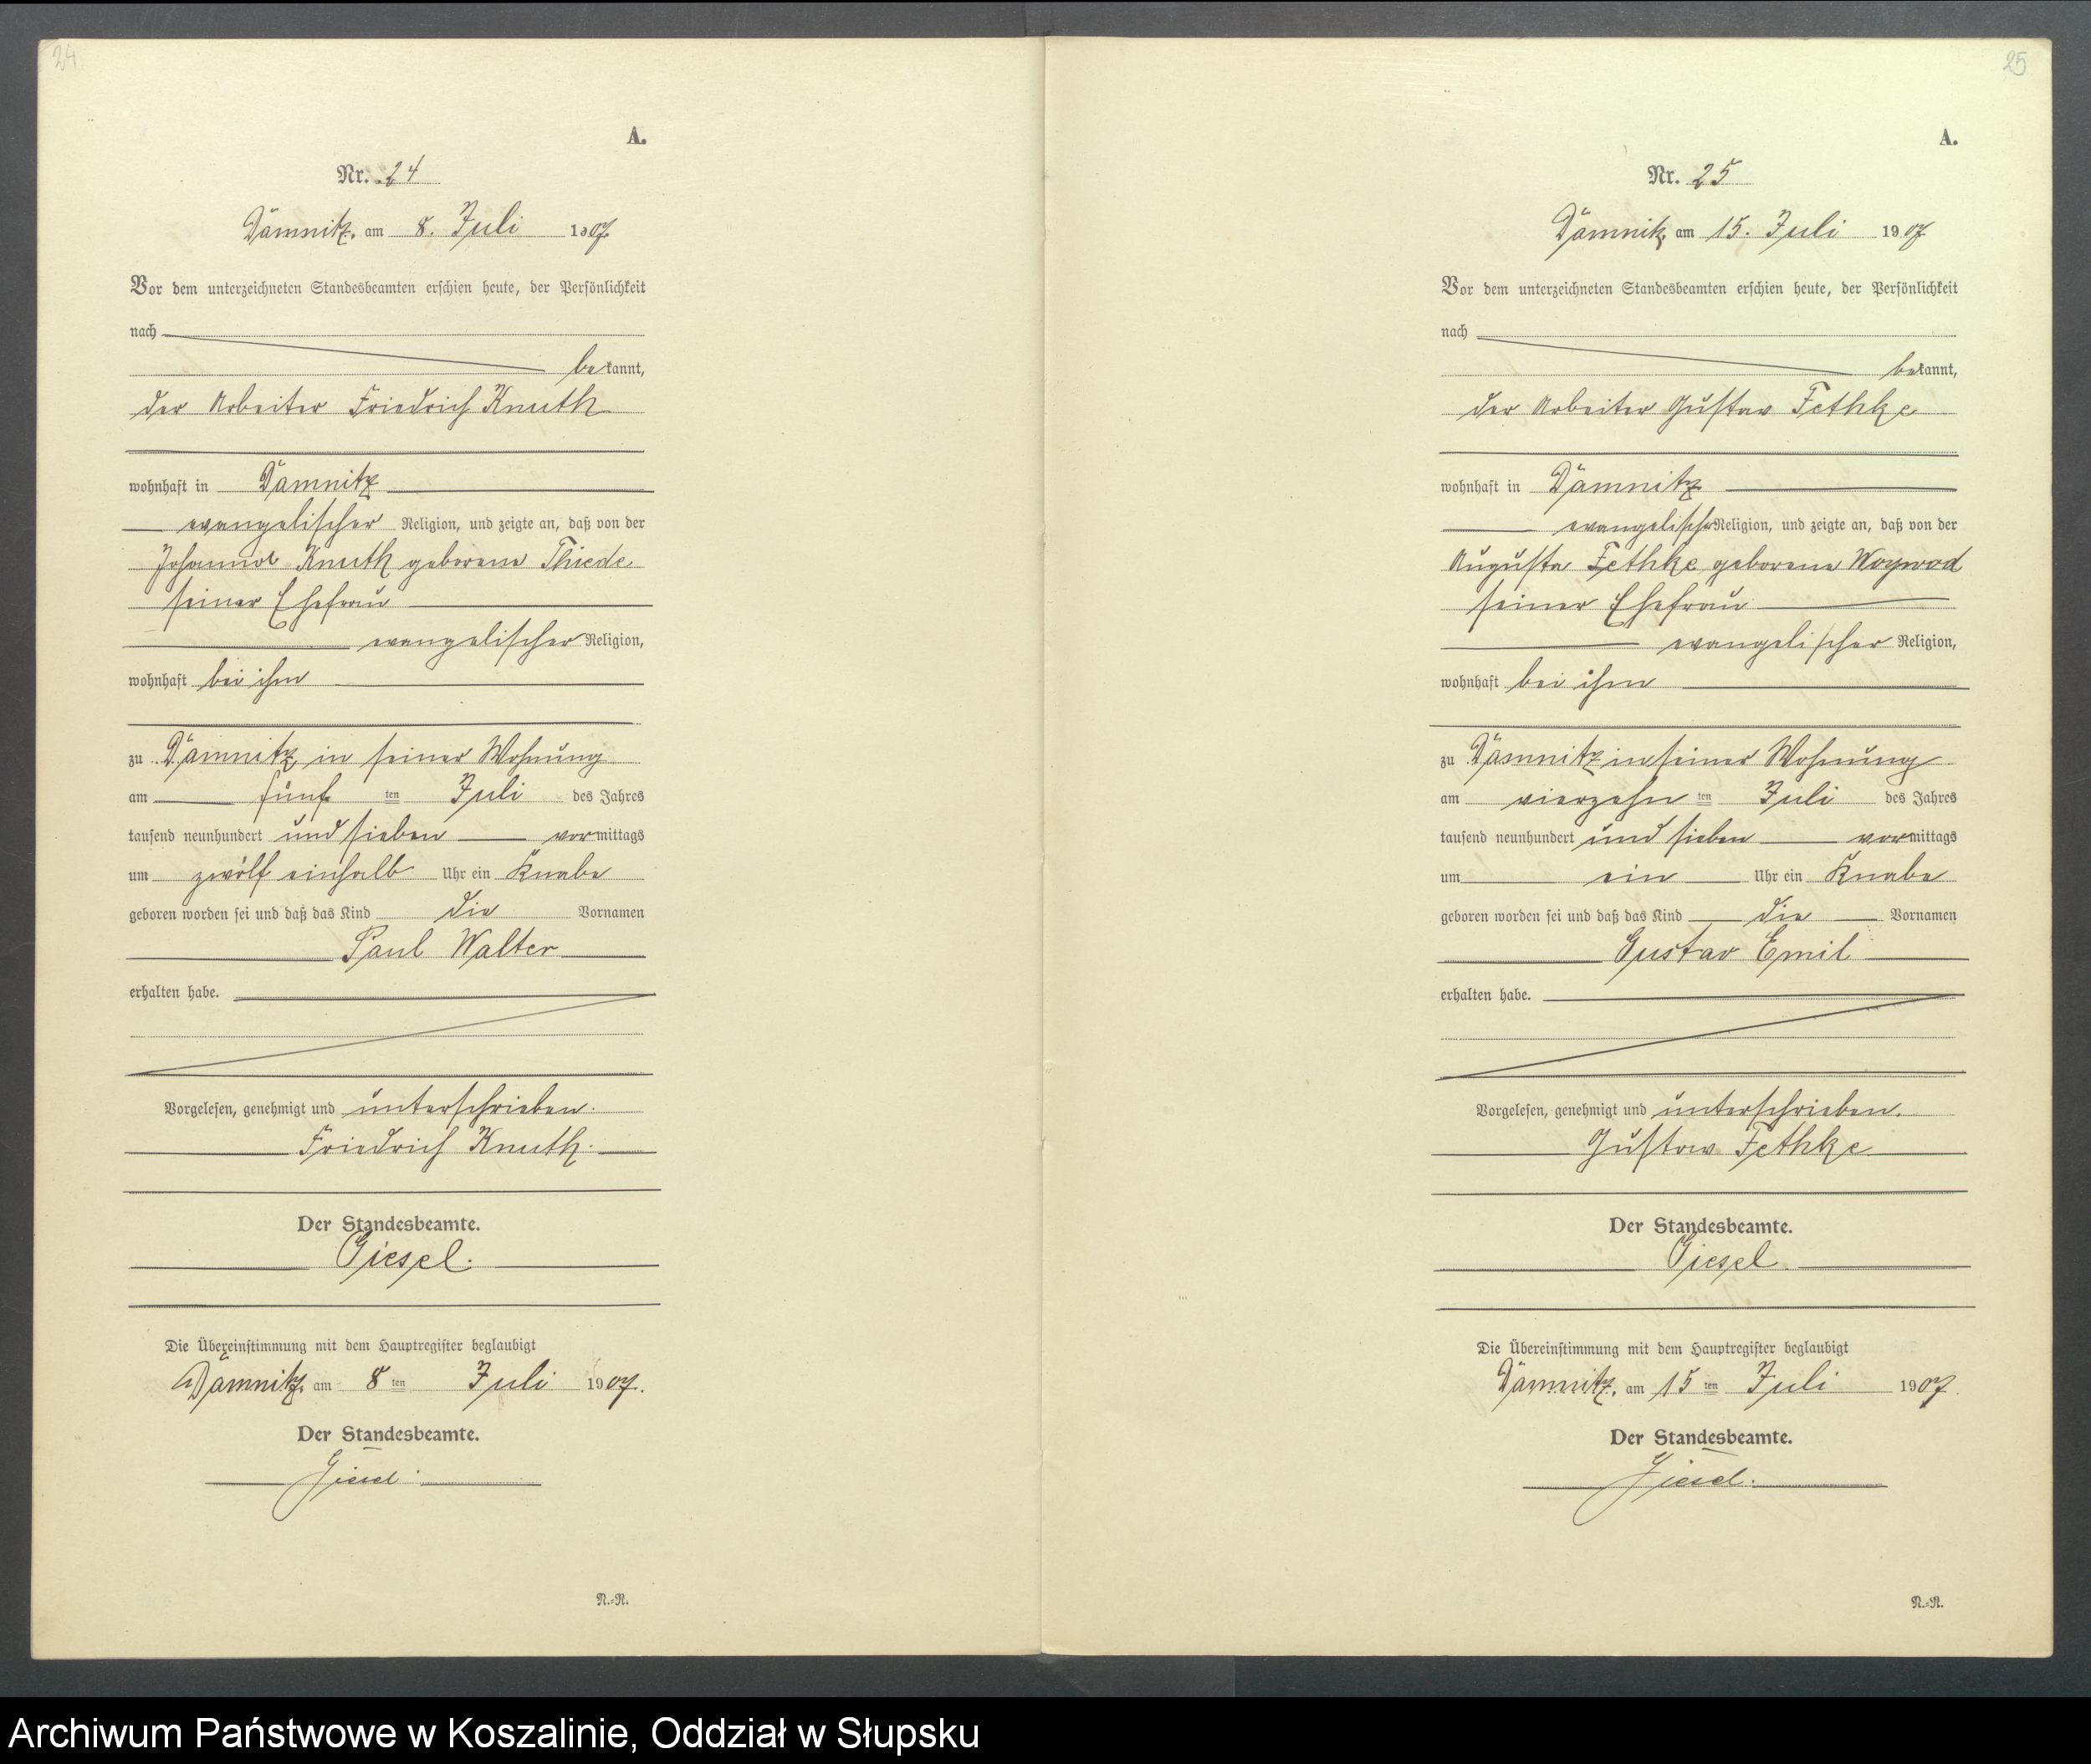 24
A.
Nr. 24
Dämnitz, am 8. Juli 1907
Vor dem unterzeichneten Standesbeamten erschien heute, der Persönlichkeit
nach
bekannt,
der Arbeiter Friedrich Knuth
wohnhaft in Dämnitz
evangelischer Religion, und zeigte an, daß von der
Johanna Knuth geborene Thiede
seiner Ehefrau
evangelischer Religion,
wohnhaft bei ihm
zu Dämnitz in seiner Wohnung
am fünf ten Juli des Jahres
tausend neunhundert und sieben vormittags
um zwölf einhalb Uhr ein Knabe
geboren worden sei und daß das Kind die Vornamen
Paul Walter
erhalten habe.
Vorgelesen, genehmigt und unterschrieben.
Friedrich Knuth.
Der Standesbeamte.
Giesel.
Die Übereinstimmung mit dem Hauptregister beglaubigt
Dämnitz, am 8 ten Juli 1907.
Der Standesbeamte.
Giesel.
N.=R.
25
A.
Nr. 25
Dämnitz, am 15. Juli 1907
Vor dem unterzeichneten Standesbeamten erschien heute, der Persönlichkeit
nach
bekannt,
der Arbeiter Gustav Fethke
wohnhaft in Dämnitz
evangelischer Religion, und zeigte an, daß von der
Auguste Fethke geborene Woywod
seiner Ehefrau
evangelischer Religion,
wohnhaft bei ihm
zu Dämnitz in seiner Wohnung
am vierzehn ten Juli des Jahres
tausend neunhundert und sieben vormittags
um ein Uhr ein Knabe
geboren worden sei und daß das Kind die Vornamen
Gustav Emil
erhalten habe.
Vorgelesen, genehmigt und unterschrieben.
Gustav Fethke
Der Standesbeamte.
Giesel.
Die Übereinstimmung mit dem Hauptregister beglaubigt
Dämnitz, am 15 ten Juli 1907.
Der Standesbeamte.
Giesel.
N.=R.
Archiwum Państwowe w Koszalinie, Oddział w Słupsku